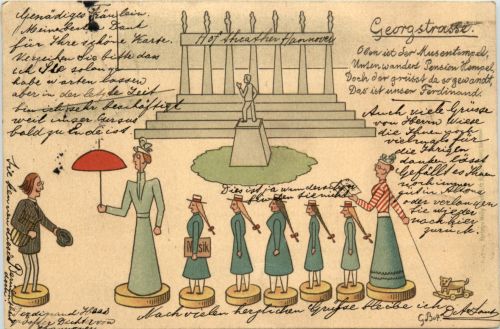 Gnädiges Fräulein.
Meinen besten Dank
für Ihre schöne Karte.
Verzeihen Sie bitte das
ich Sie so lange
habe warten lassen
aber in der letzte Zeit
bin ich sehr beschäftigt
weil unser Cursus
bald zu Ende ist
Hof theather Hannover
Georgstrasse.
Oben ist der Musentempel,
Unten wandert Pension Hempel,
Doch der grüsst da so gewandt,
Das ist unser Ferdinand.
Auch viele Grüsse
von Herrn Wiese
die Ihnen
vielmals für
die Ihrigen
danken lässt
Gefällt es Ihnen
noch immer
gut in Altona
oder verlangen
Sie wieder
nach hier
zurück.
Dies ist ja wunderschön
Musik
Nach vielen herzlichen Grüsse bleibe ich
Ferdinand